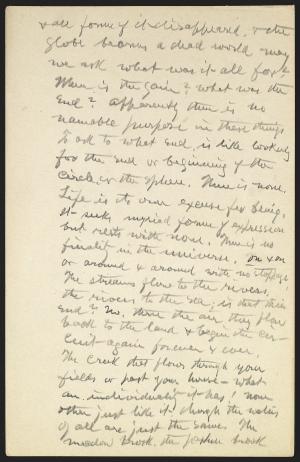 & all forms of it disappeared, & the
globe becomes a dead world may
we ask what was it all for?
Where is the gain? what was the
End? Apparently there is no
namable purpose in these things
To ask to what End, is like looking
for the End or beginning of the
circle, or the sphere. There is none.
Life is its own excuse for being.
It seeks myriad forms of expression
but rests with none. There is no
finality in the universe. on & on
or around & around with no stoppage!
The streams flow to the rivers,
the rivers to the sea; is that their
End? No, thru the air they flow
back to the land & begin the cir-
cuit again forever & ever.
The Creek that flows through your
fields or past your house— what
an individuality it has! none
other just like it though the waters
of all are just the same. The
meadow brook, the pasture brook